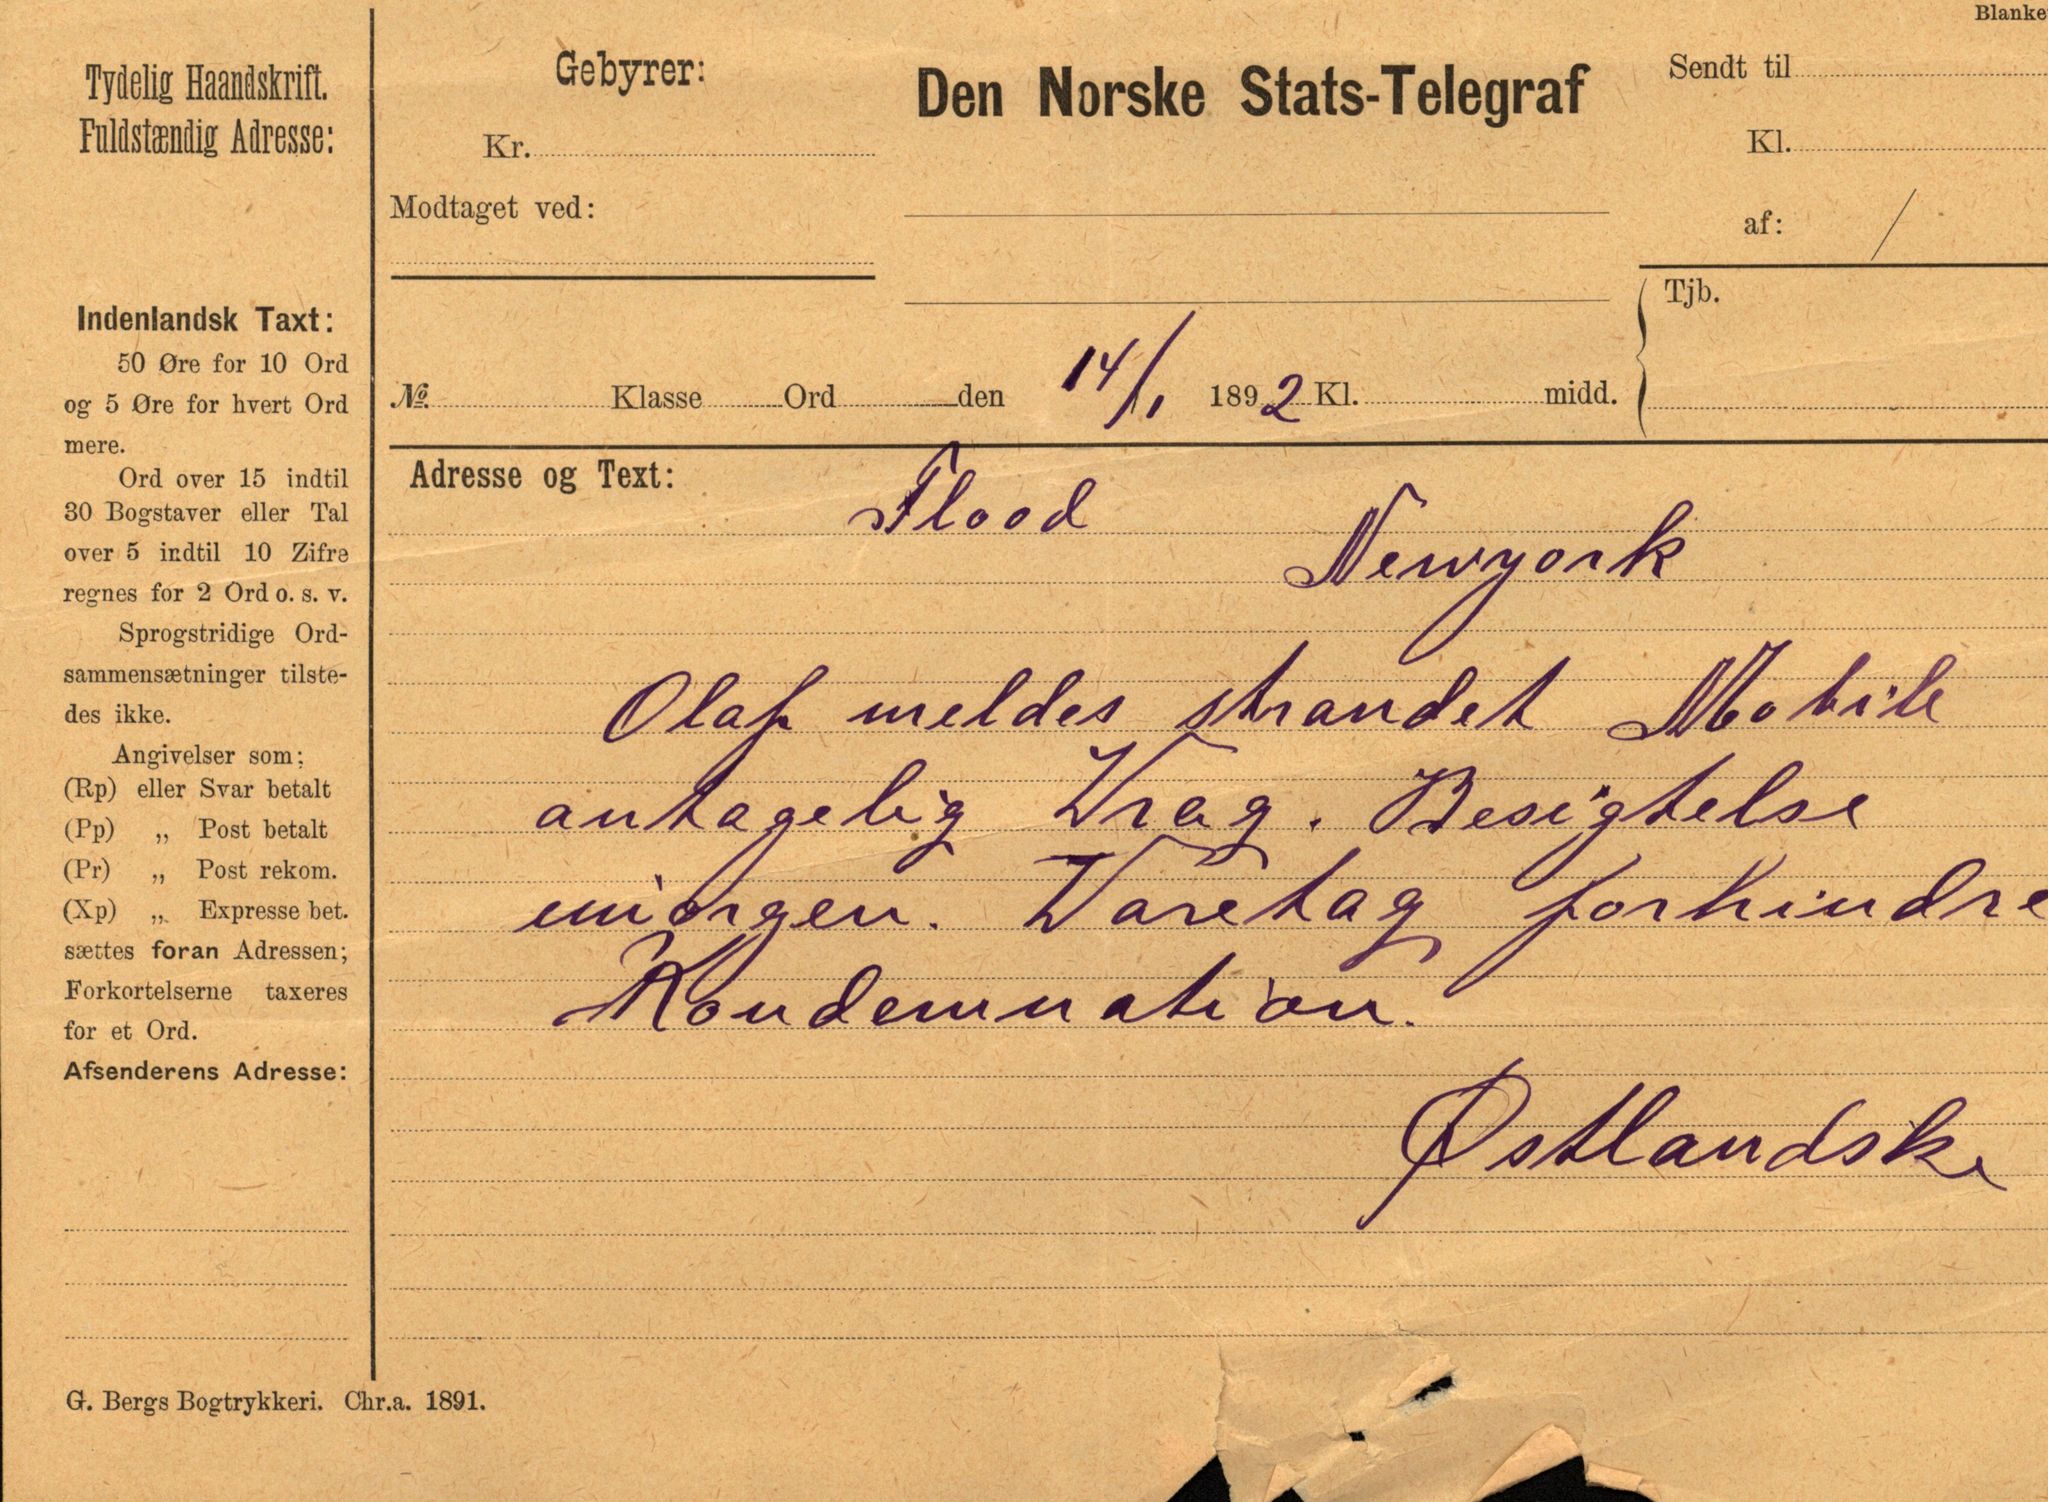 Blanke
Tydelig Haandskrift.
Fuldstændig Adresse:
Indenlandsk Taxt:
50 Øre for 10 Ord
og 5 Øre for hvert Ord
mere.
Ord over 15 indtil
30 Bogstaver eller Tal
over 5 indtil 10 Zifre
regnes for 2 Ord o. s. v.
Sprogstridige Ord-
sammensætninger tilste-
des ikke.
Angivelser som:
(Rp) eller Svar betalt
(Pp) „ Post betalt
(Pr) „ Post rekom.
(Xp) „ Expresse bet.
sættes foran Adressen;
Forkortelserne taxeres
for et Ord.
Afsenderens Adresse:
G. Bergs Bogtrykkeri. Chr.a. 1891.
Gebyrer:
Kr.
Modtaget ved:
Den Norske Stats-Telegraf
Sendt til
Kl.
af: /
Tjb.
No. Klasse Ord den 14/1 1892 Kl. midd.
Adresse og Text:
Flood
Newyork
Olaf meldes strandet Mobile
antagelig Vrag. Besigtelse
imorgen. Varetag forhindre
Kondemnation.
Østlandske